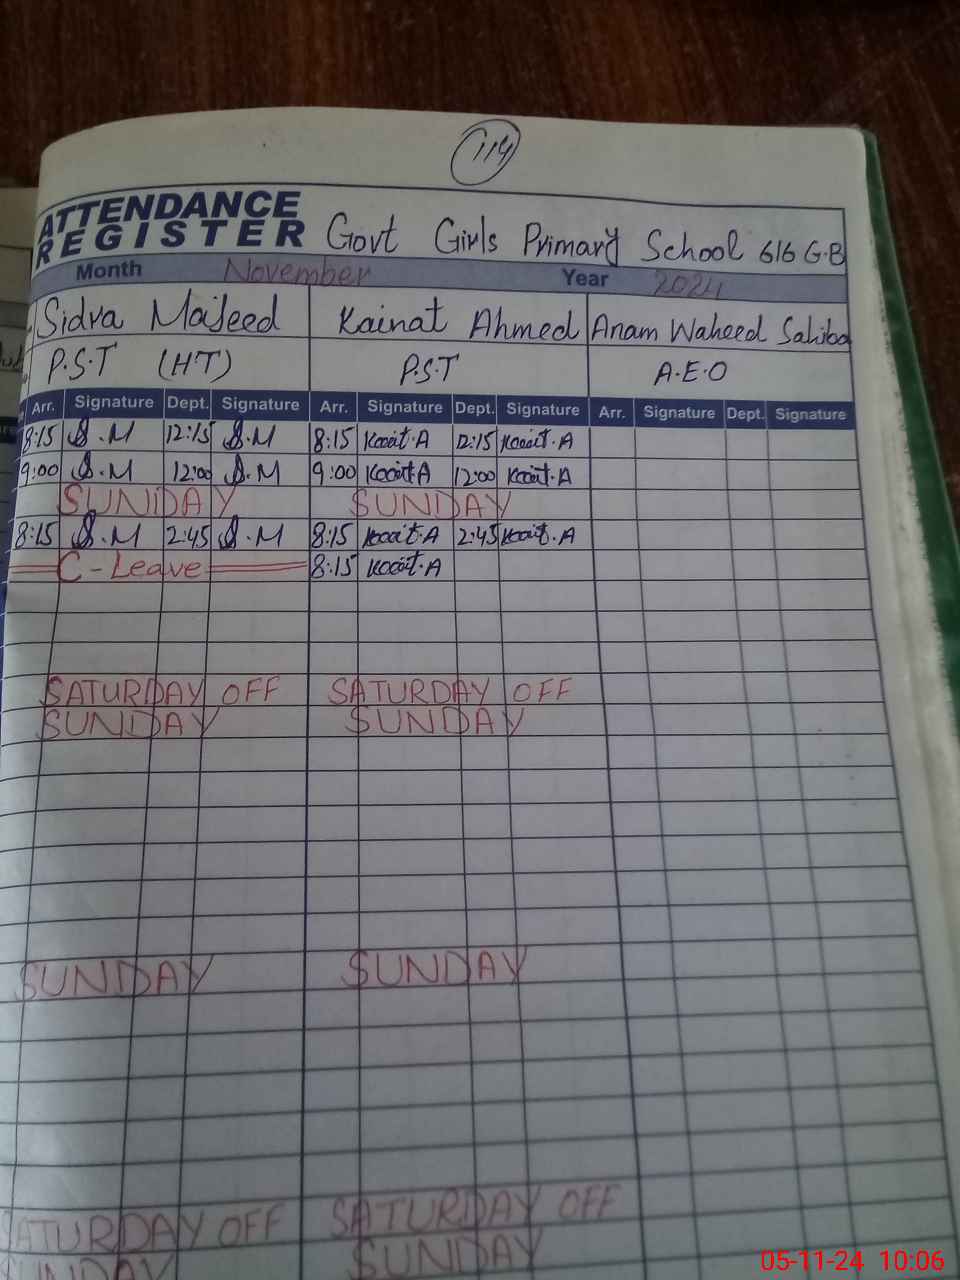 114
ATTENDANCE
REGISTER Govt Girls Primary School 616 G.B
Month November Year 2024
Sidra Majeed Kainat Ahmed Anam Waheed Sahiba
P.S.T (H.T) P.S.T A.E.O
Arr. Signature Dept. Signature Arr. Signature Dept. Signature Arr. Signature Dept. Signature
8:15 S.M 12:15 S.M 8:15 12:15
9:00 S.M 12:00 S.M 9:00 12:00
SUNDAY SUNDAY
8:15 S.M 2:45 S.M 8:15 2:45
C-Leave 8:15
SATURDAY OFF SATURDAY OFF
SUNDAY SUNDAY
SUNDAY SUNDAY
SATURDAY OFF SATURDAY OFF
SUNDAY SUNDAY
05-11-24 10:06